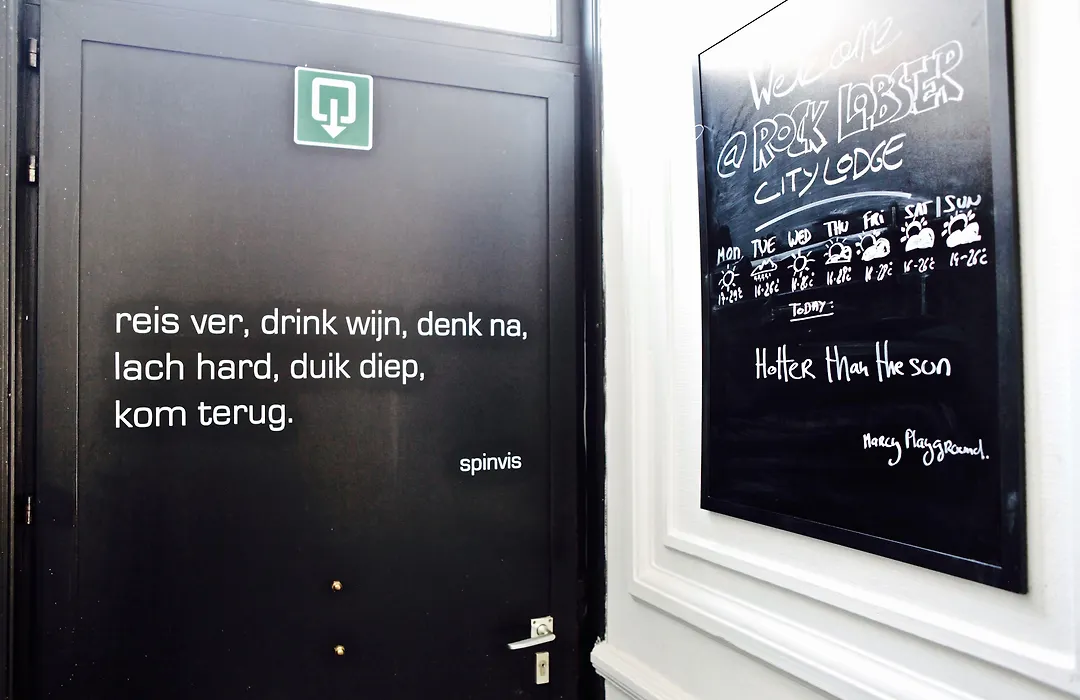 reis ver, drink wijn, denk na,
lach hard, duik diep,
kom terug.
spinvis
Welcome
@ ROCK LOBSTER
CITY LODGE
MON TUE WED THU FRI SAT SUN
17-29°C 16-26°C 16-28°C 16-28°C 16-28°C 16-26°C 14-26°C
TODAY:
Hotter than the sun
Marcy Playground.